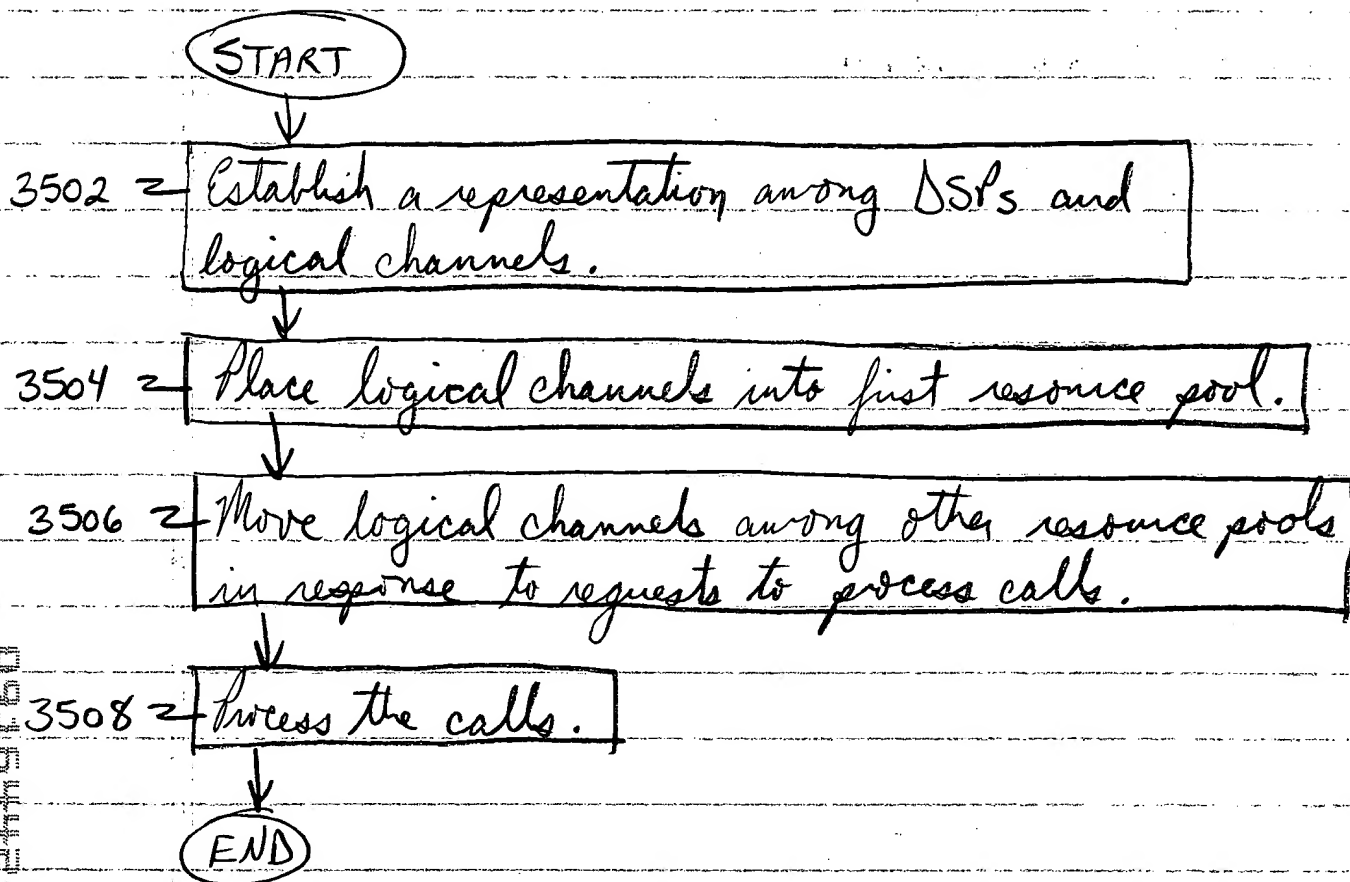 START
3502 Establish a representation among DSPs and
logical channels.
3504 Place logical channels into first resource pool.
3506 Move logical channels among other resource pools
in response to requests to process calls.
3508 Process the calls.
END